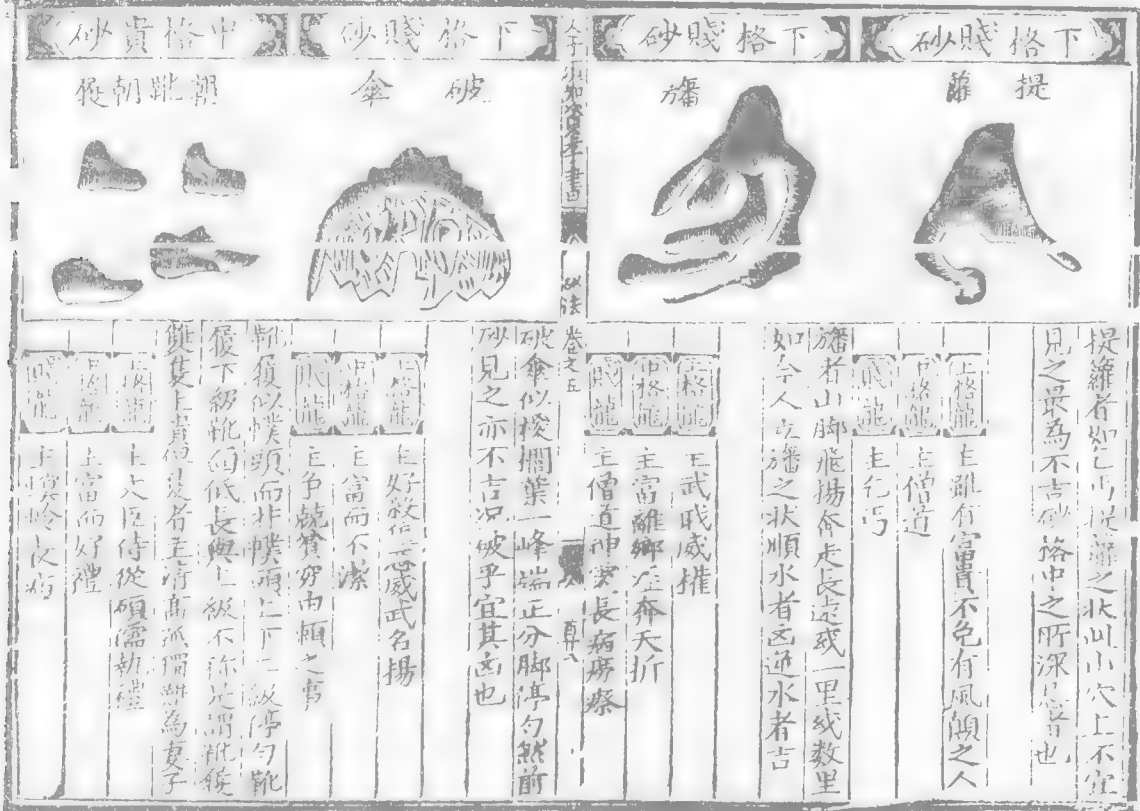 下格賤砂
提蘿
提蘿者如乞丐提蘿之狀此山穴上不宜
見之最為不吉砂格中之所深忌者也
上格龍 主雖有富貴不免有風顛之人
中格龍 主僧道
賤龍 主乞丐
下格賤砂
旛
旛者山脚飛揚奔走長遠或一里或数里
如今人立旛之状順水者凶逆水者吉
上格龍 主武職威權
中格龍 主富離鄉 奔夭折
賤龍 主僧道神 長病癆瘵
人子須知
砂法
卷之五
下格賤砂
破傘
破傘似椶櫚葉一峰端正分脚停勻然前
砂見之亦不吉况破乎宜其凶也
上格龍 主好殺 威武名揚
中格龍 主富而不潔
賤龍 主争競 穿 之事
中格貴砂
朝靴朝履
靴履似幞頭而非幞頭上下二級停勻靴
履下級靴面低長與上級不 是謂靴履
雙隻上貴 者主 高孤獨 為妻子
上格龍 主大臣侍從碩儒執禮
中格龍 主富而好禮
賤龍 主螟蛉